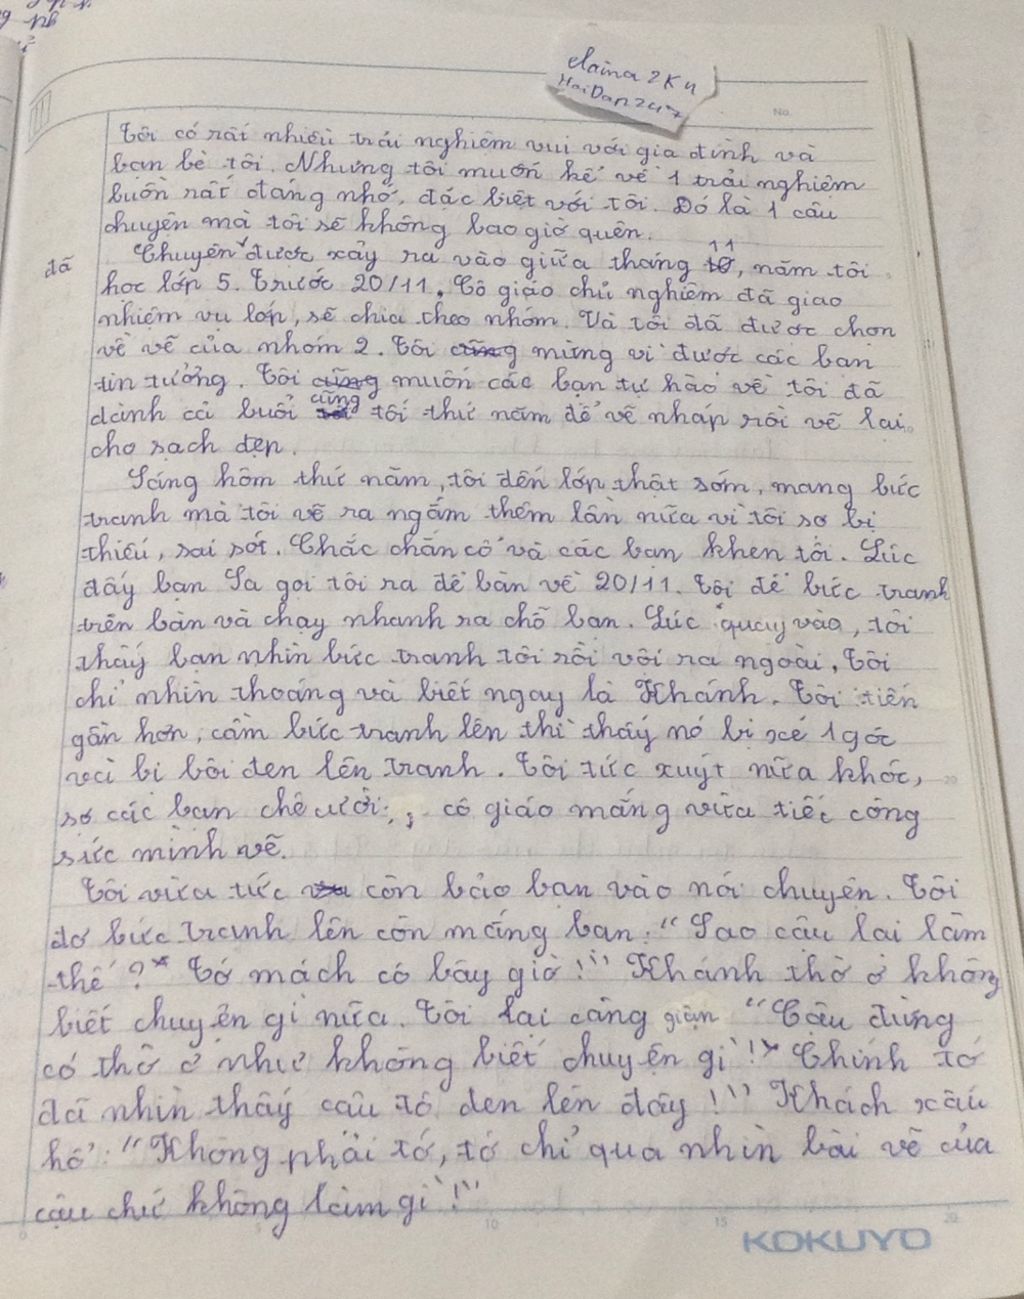 elaina 2K4
HaiDan247
No.
Tôi có rất nhiều trải nghiệm vui với gia đình và
bạn bè tôi. Nhưng tôi muốn kể về 1 trải nghiệm
buồn rất đáng nhớ, đặc biệt với tôi. Đó là 1 câu
chuyện mà tôi sẽ không bao giờ quên.
11
đã Chuyện được xảy ra vào giữa tháng 10, năm tôi
học lớp 5. Trước 20/11, Cô giáo chủ nghiệm đã giao
nhiệm vụ lớp, sẽ chia theo nhóm. Và tôi đã được chọn
về vẽ của nhóm 2. Tôi cũng mừng vì được các bạn
tin tưởng. Tôi cũng muốn các bạn tự hào về tôi đã
dành cả buổi cũng tối thứ năm để vẽ nháp rồi vẽ lại
cho sạch đẹp.
Sáng hôm thứ năm, tôi đến lớp thật sớm, mang bức
tranh mà tôi vẽ ra ngắm thêm lần nữa vì tôi sợ bị
thiếu, sai sót. Chắc chắn cô và các bạn khen tôi. Lúc
đấy bạn Sa gọi tôi ra để bàn về 20/11. Tôi để bức tranh
trên bàn và chạy nhanh ra chỗ bạn. Lúc quay vào, tôi
thấy bạn nhìn bức tranh tôi rồi vội ra ngoài, Tôi
chỉ nhìn thoáng và biết ngay là Khánh. Tôi tiến
gần hơn, cầm bức tranh lên thì thấy nó bị xé 1 góc
và bị bôi đen lên tranh. Tôi tức xuýt nữa khóc,
sợ các bạn chê cười, cô giáo mắng vừa tiếc công
sức mình vẽ.
Tôi vừa tức còn bảo bạn vào nói chuyện. Tôi
đơ bức tranh lên còn mắng bạn: "Sao cậu lại làm
thế ?" Tớ mách cô bây giờ !" Khánh thờ ơ không
biết chuyện gì nữa. Tôi lại càng giận "Cậu đừng
có thờ ơ như không biết chuyện gì !" Chính tớ
đã nhìn thấy cậu tô đen lên đấy !" Khách xấu
hổ: "Không phải tớ, tớ chỉ qua nhìn bài vẽ của
cậu chứ không làm gì !"
10 15 20
KOKUYO